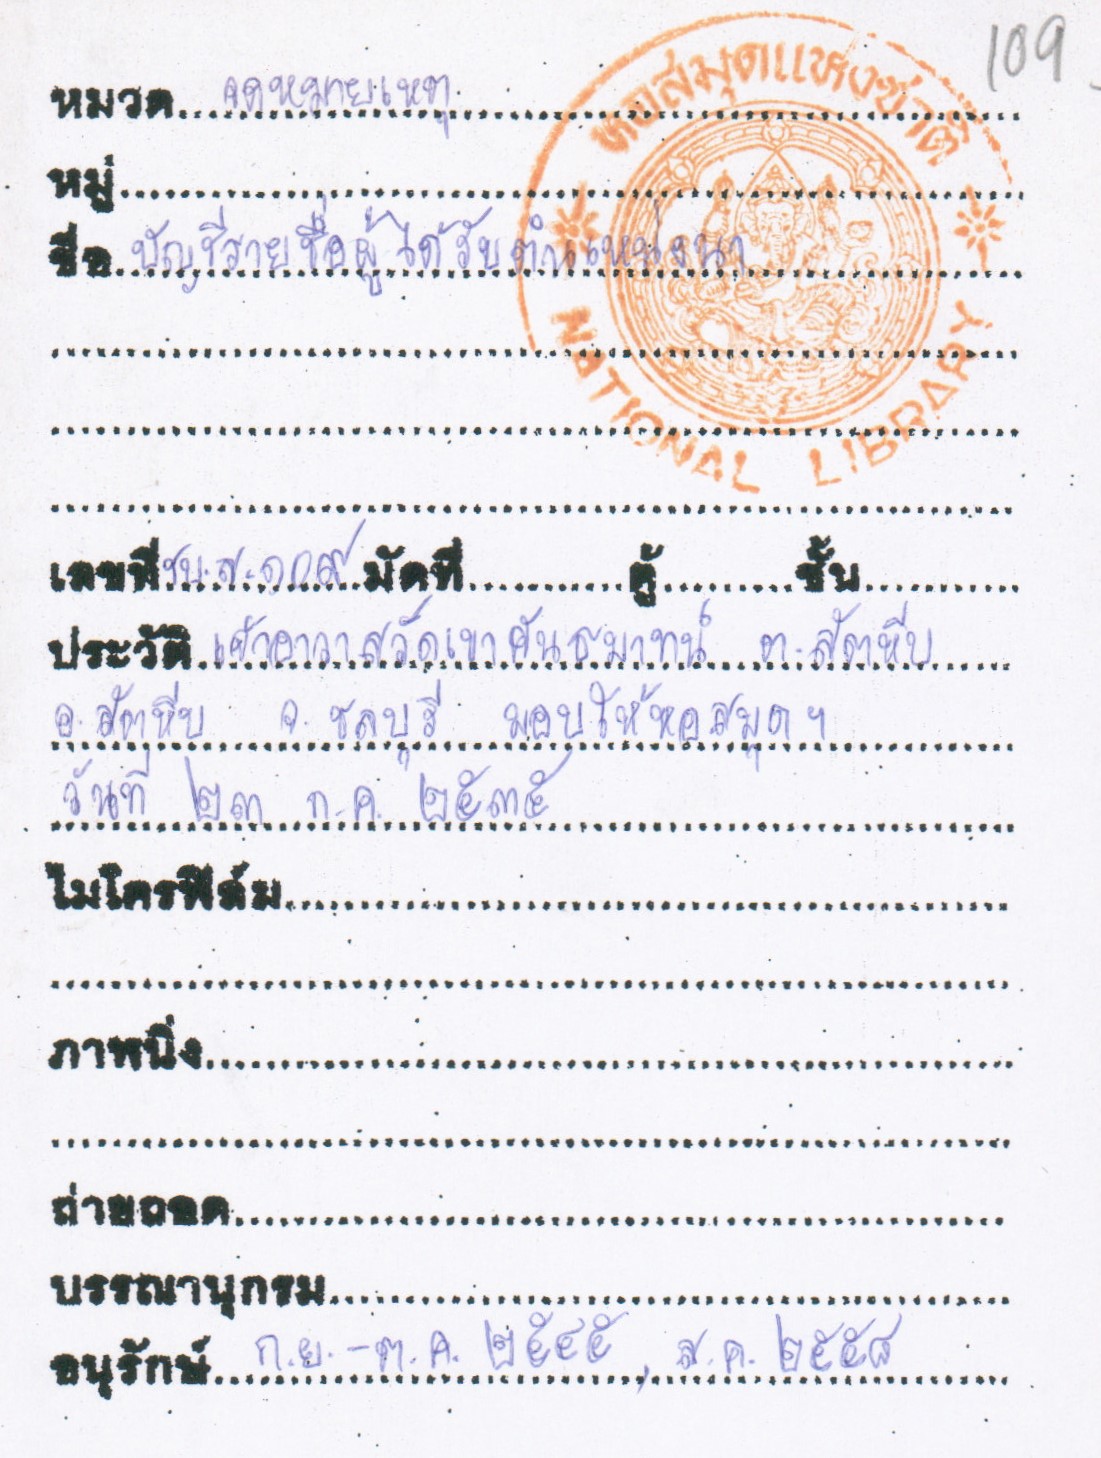 109
หอสมุดแห่งชาติ
NATIONAL LIBRARY
หมวด จดหมายเหตุ
หมู่
ชื่อ บัญชีรายชื่อผู้ได้รับตำแหน่งนา
เลขที่ ชบ.ส.๑๐๙ มัดที่ ตู้ ชั้น
ประวัติ เจ้าอาวาสวัดเขาคันธมาทน์ ต.สัตหีบ
อ.สัตหีบ จ.ชลบุรี มอบให้หอสมุดฯ
วันที่ ๒๓ ก.ค. ๒๕๓๕
ไมโครฟิล์ม
ภาพนิ่ง
ถ่ายถอด
บรรณานุกรม
อนุรักษ์ ก.ย.-ต.ค. ๒๕๔๕, ส.ค. ๒๕๕๘